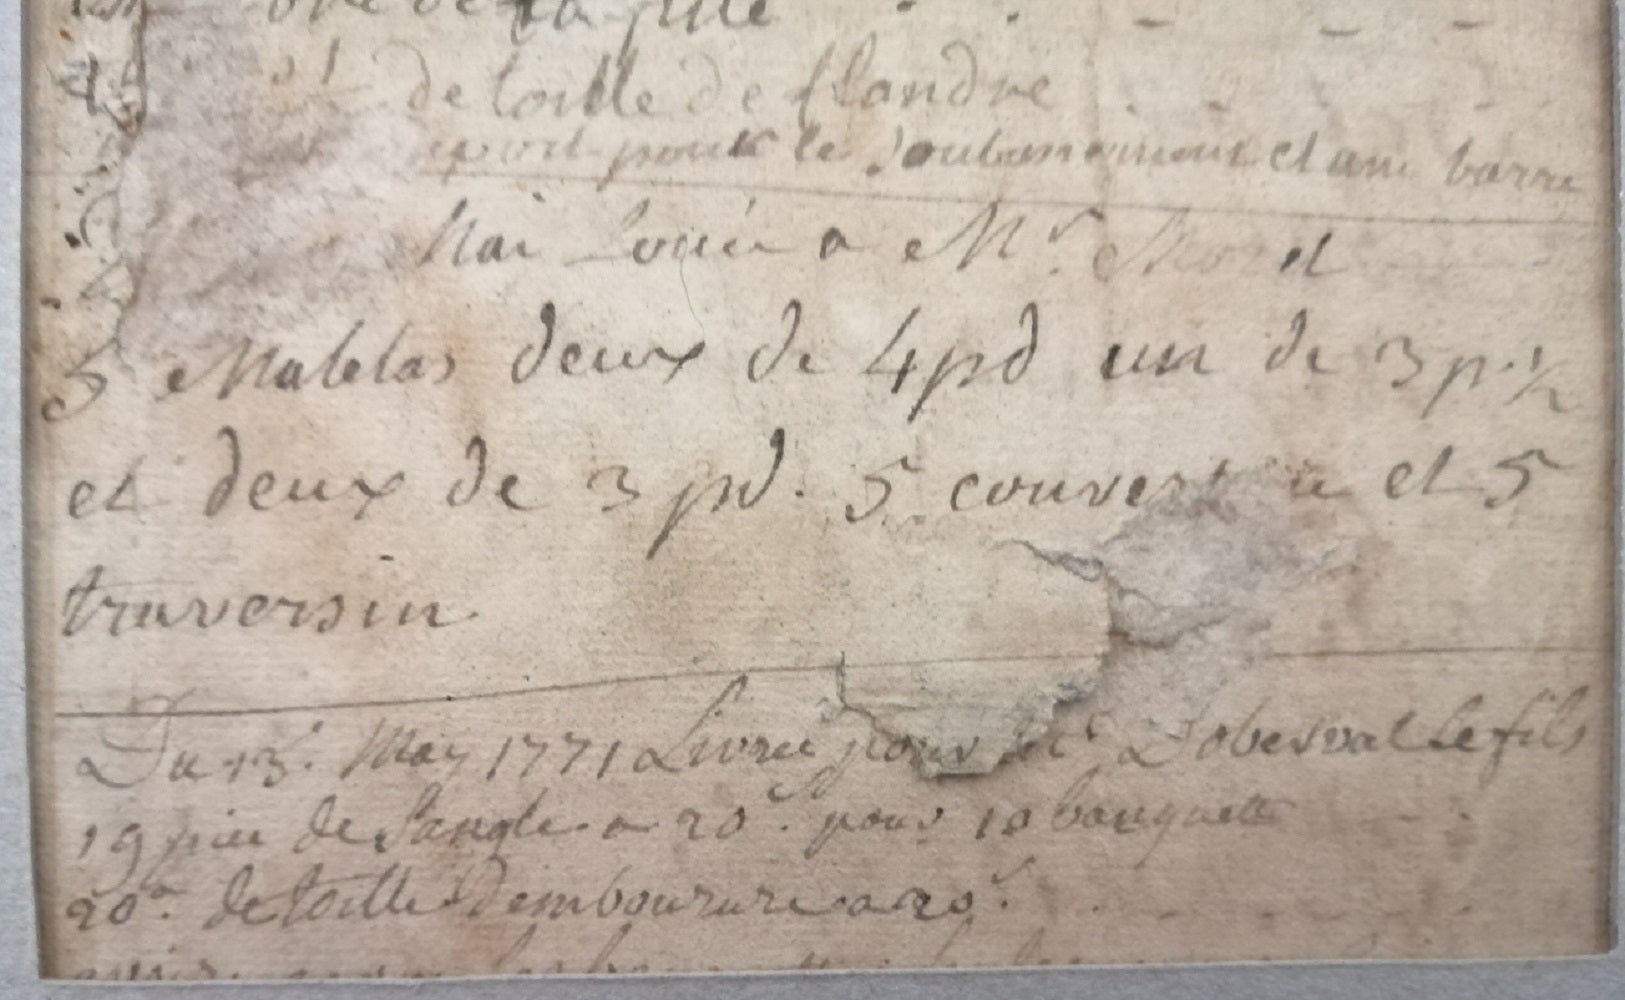 de la
de toille de flandre
pour le Soubassement et une barre
Mai Loüé a Mr. Morel
5 Matelas deux de 4 pd un de 3 p. 1/2
et deux de 3 pd. 5 couvert et 5
traversin
Du 13. May 1771 Livré pour Mr Dobesval Le fils
19 piece de Sangle a 20s. pour 10 banquette
20a. de toille Dembourure a 20s.